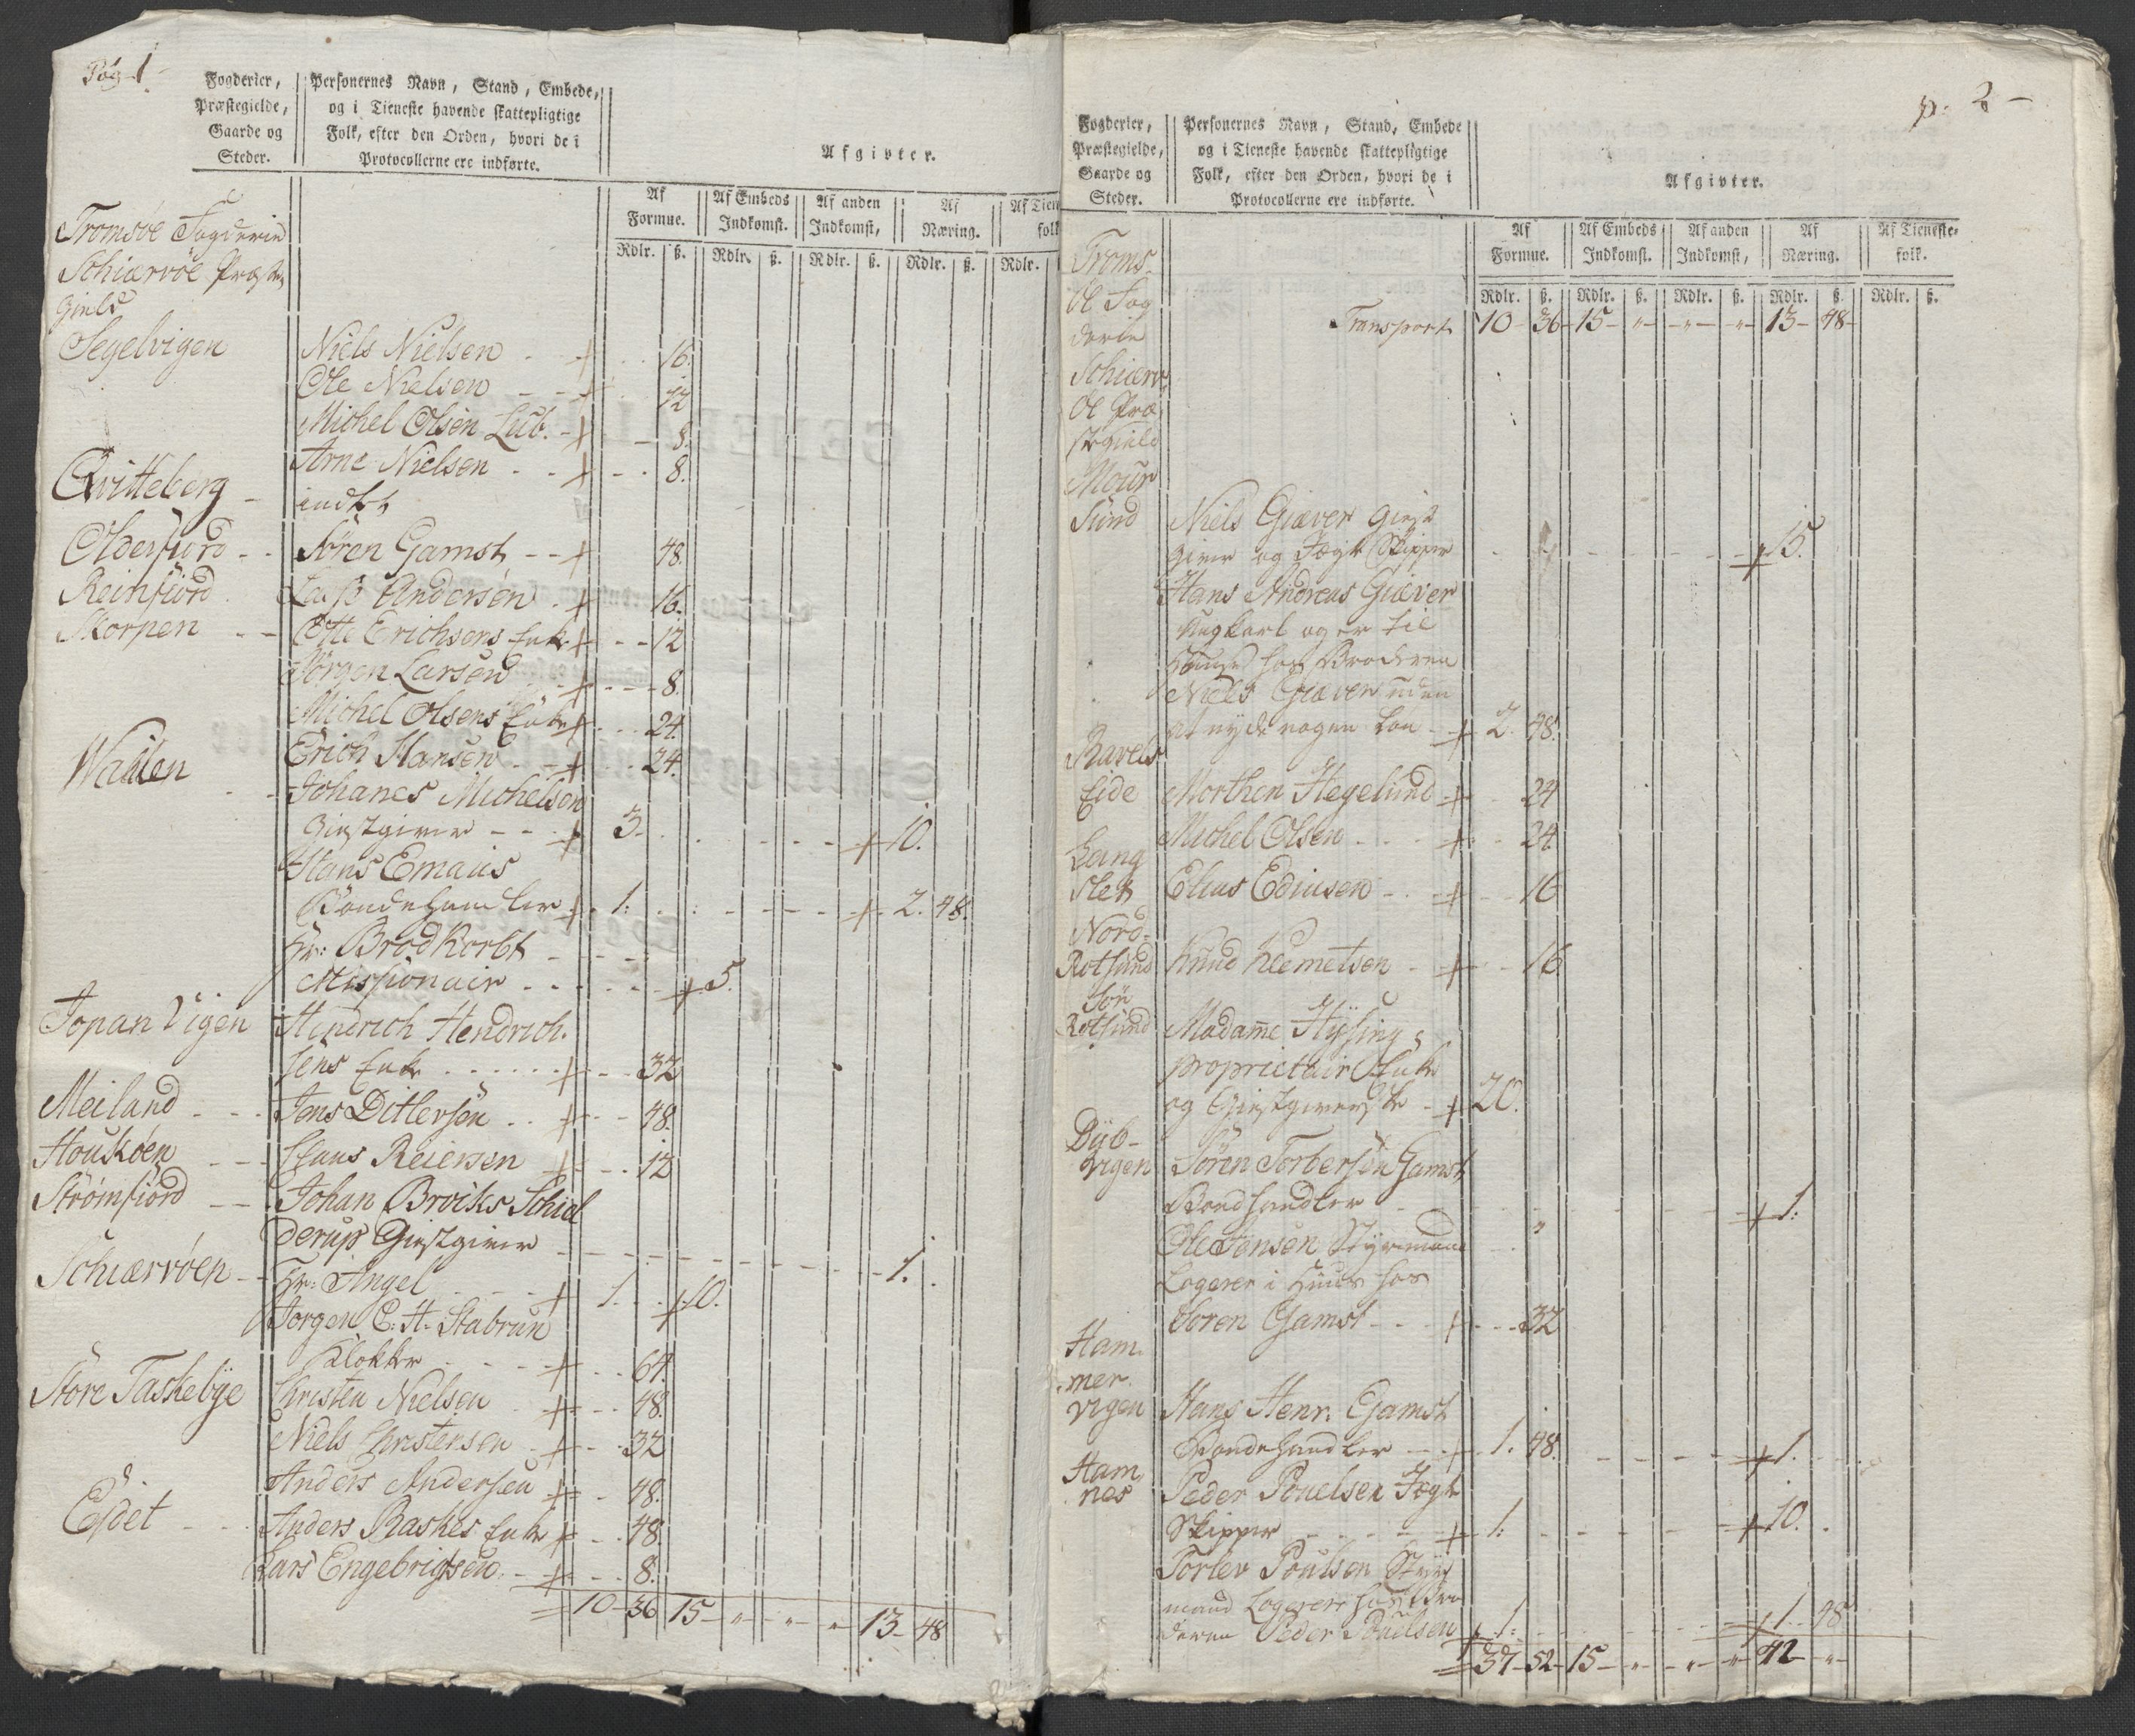 Pag 1
Fogderier,
Præstegielde,
Gaarde og
Steder.
Personernes Navn, Stand, Embede,
og i Tieneste havende skattepligtige
Folk, efter den Orden, hvori de i
Protocollerne ere indførte.
Afgivter.
Af
Formue.
Af Embeds
Indkomst.
Af anden
Indkomst,
Af
Næring.
Af Tien
folk
Rdlr. ß. Rdlr. ß. Rdlr. ß. Rdlr. ß. Rdlr.
Tromsöe Fogderie
Schiervöe Præste
Gield
Segelvigen Niels Nielsen 16.
Ole Nielsen 12
Michel Olsen Lub. 8.
Arne Nielsen 8.
Qvitteberg indt
Olderfiord Sören Gamst 48.
Reinfiord Lasse Andersen 16.
Skorpen Ole Erichsens Enke 12
Jörgen Larsen 8.
Michel Olsens Enke 24.
Walden Erich Hansen 24.
Johanes Michelsen
Giestgiver 3. 10.
Hans Emaus
Bondehandler 1. 2. 48.
Hr: Brodkorbt
Missionair 5.
Jopan Vigen Hindrich Hendrich-
sens Enke 32
Meiland Jens Ditlersen 48.
Houkøen Claus Reiersen 12
Strömfiord Johan Broiks Schiel
derup Giestgiver 1.
Schiærvöen Hr: Angel 1. 10.
Jorgen C. H. Stabrun
Klokker 64.
Store Taskebye Christen Nielsen 48.
Niels Christensen 32
Anders Andersen 48.
Ejdet Anders Baskes Enke 48.
Lars Engebrigtsen 8.
10 - 36 15 - " - " - " 13 - 48
p. 2 -
Fogderier,
Præstegielde,
Gaarde og
Steder.
Personernes Navn, Stand, Embede
og i Tieneste havende skattepligtige
Folk, efter den Orden, hvori de i
Protocollerne ere indførte.
Afgivter.
Af
Formue.
Af Embeds
Indkomst.
Af anden
Indkomst,
Af
Næring.
Af Tieneste-
folk.
Rdlr. ß. Rdlr. ß. Rdlr. ß. Rdlr. ß. Rdlr. ß.
Troms-
öe Fog
derie
Schiærv
öe Præ
stegield
Transport 10 - 36 - 15 - " - " - " - 13 - 48 -
Mour
Sund Niels Giæver Giest
giver og Jægt Skipper 15.
Hans Andreas Giæver
Ungkarl og er til
Huuse hos Broderen
Niels Giæver uden
at nyde nogen Løn 2. 48.
Ravels
Eide Morthen Hegelund 24
Michel Olsen 24.
Lang
slet Elias Ediusen 16
Nord-
Rotsund Knud Klemetsen 16
Sör
Rotsund Madame Hysing,
Proprietair Enke
og Giestgiverske 20.
Dyb-
vigen Sören Torbersen Gamst
Bondhandler 1.
Ole Jansen Styrmand "
Logerer i Huus hos
Soren Gamst 32
Ham-
mer
vigen Hans Henr. Gamst
Bondehandler 1. 48. 1.
Ham
nes Peder Pouelsen Jægt
Skipper 1. 10.
Torlev Poulsen Styr
mand Logerer hos Bro
deren Peder Pouelsen 1. 1. 48
37 - 52 - 15 - " - " - " 42 - "